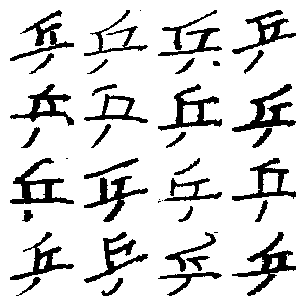 乒乒乒乒
乒乒乒乒
乒乒乒乒
乒乒乒乒